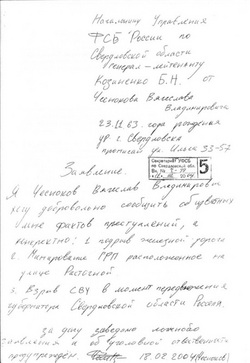 Начальнику Управления
ФСБ России по
Свердловской области
генерал-лейтенанту
Козиненко Б.Н. от
Чеснокова Вячеслава
Владимировича
23.11.63. года рождения
ур г. Свердловска
прописан ул. 33-57
5
Заявление.
Я Чесноков Вячеслав Владимирович
хочу добровольно сообщить об известных
мне фактов преступлений, а
конкретно: 1. подрыв железной дороги
2. Минирование ГРП расположенное на
улице Расточной
3. Взрыв СВУ в момент передвижения
губернатора Свердловской области Россель.
за дачу заведомо ложного
заявления и об уголовной ответственности
предупрежден. 18.02.2004